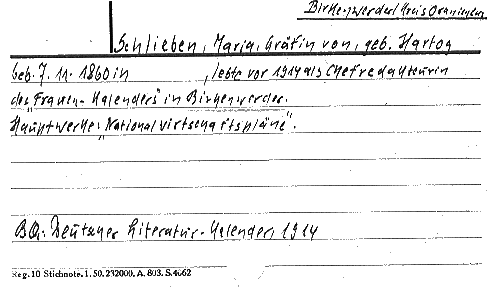 Birkenwerder Kreis Oranienburg
Schlieben, Maria, Gräfin von, geb. Hartog
geb. 7. 11. 1860 in , lebte vor 1914 als Chefredakteurin
des „Frauen-Kalenders" in Birkenwerder.
Hauptwerke: „Nationalwirtschaftspläne".
BQu: Deutscher Literatur-Kalender 1914
Reg. 10 Stichnote. 1. 50. 232000. A. 803. S. 4662